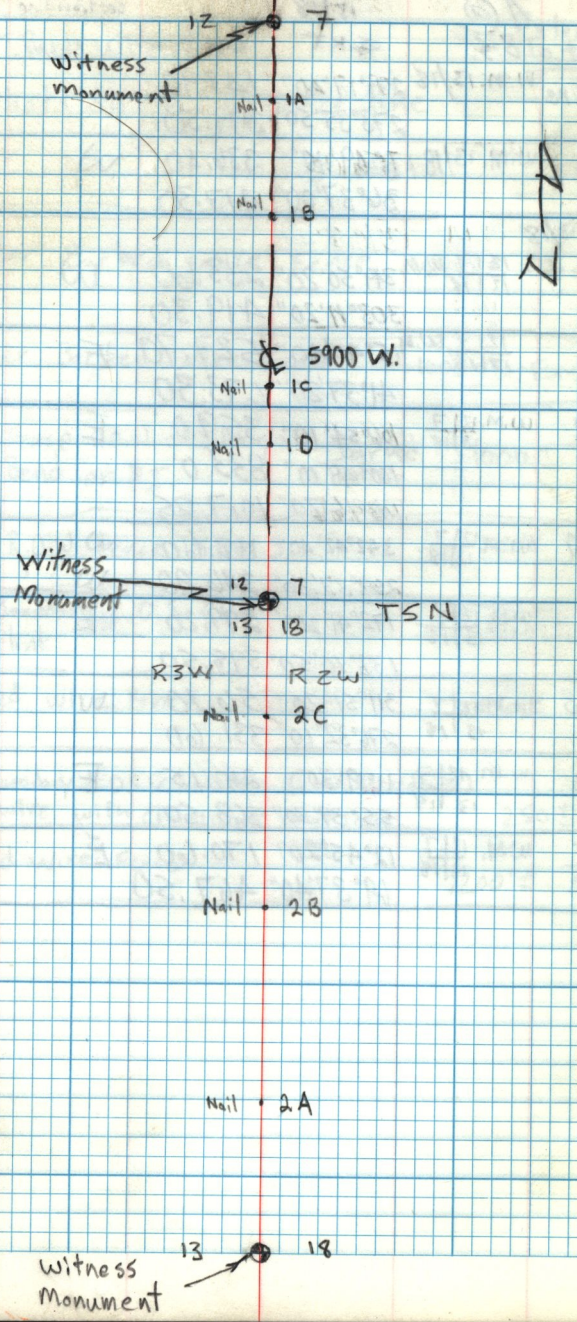 12 7
Witness
Monument
Nail 1A
Nail 1B
℄ 5900 W.
Nail 1C
Nail 1D
Witness
Monument
12 7
13 18
T5N
R3W R2W
Nail 2C
Nail 2B
Nail 2A
13 18
Witness
Monument
N